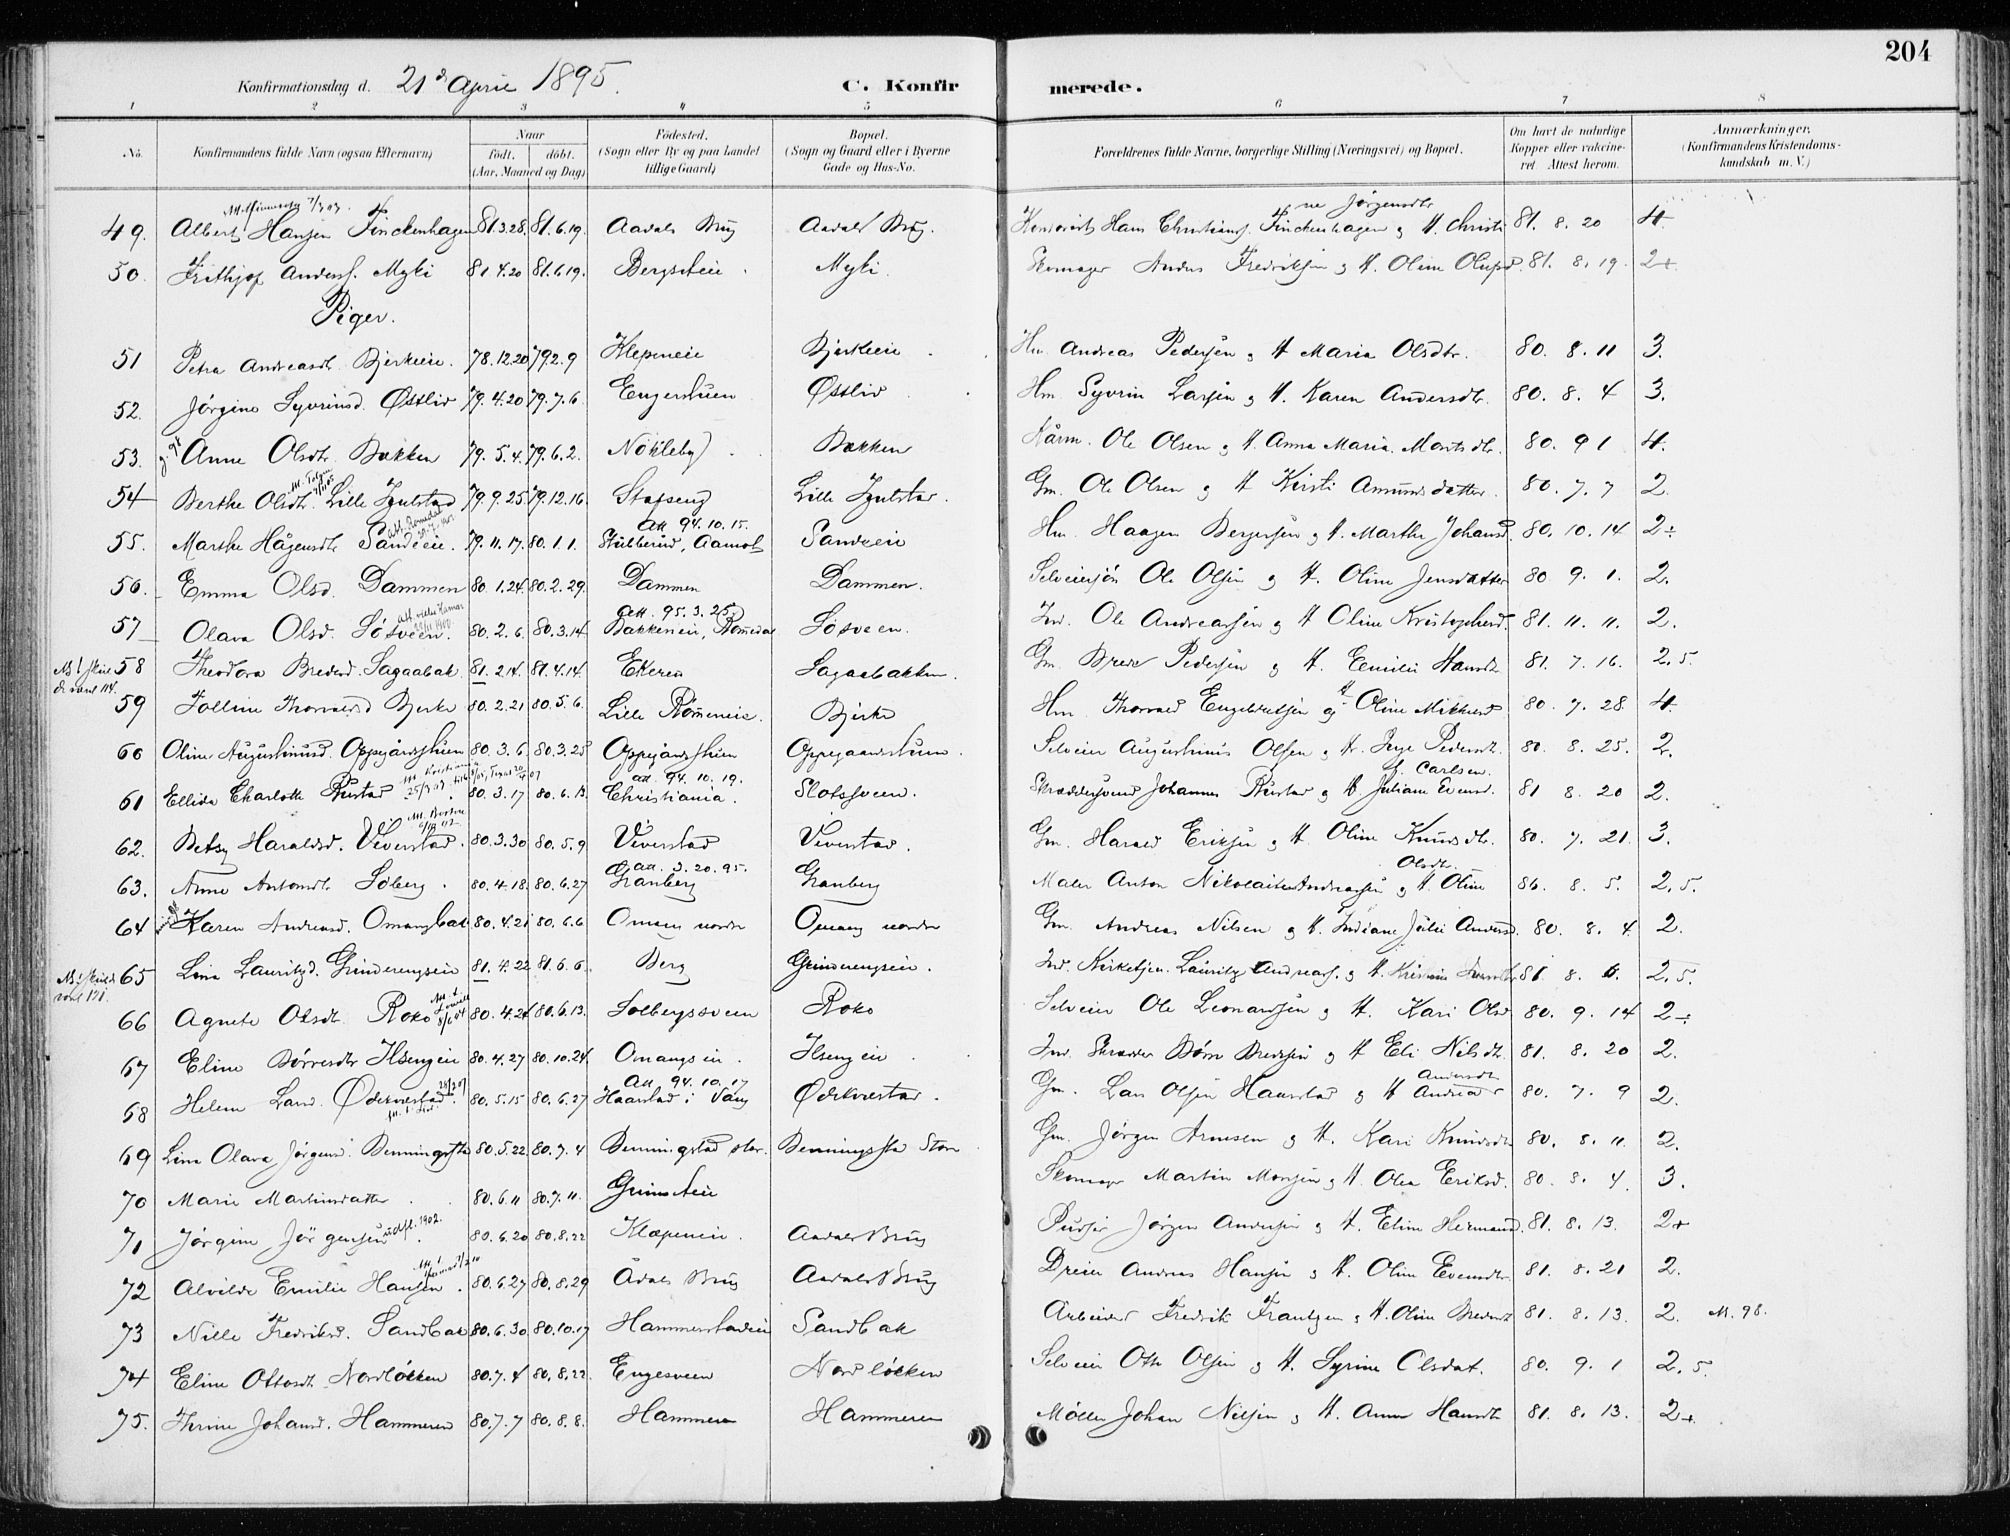 204
Konfirmationsdag d. 21de April 1895. C. Konfirmerede.
1 2 3 4 5 6 7 8
No. Konfirmandens fulde Navn (ogsaa Efternavn) Naar født. døbt. (Aar, Maaned og Dag) Fødested. (Sogn eller By og paa Landet tillige Gaard) Bopæl. (Sogn og Gaard eller i Byerne Gade og Hus-No. Forældrenes fulde Navne, borgerlige Stilling (Næringsvei) og Bopæl. Om havt de naturlige Kopper eller vakcineret. Attest herom. Anmærkninger. (Konfirmandens Kristendomskundskab m. V.)
49. Albert Hansen Finckenhagen 81.3.28. 81.6.19. Aadals Brug Aadals Brug. Hans Christians. Finckenhagen og H. Christine Jørgensdtr 81. 8. 20 4.
50. Frithjof Anders. Myhi 81.4.20 81.6.19. Bergseteie Myhi. Skomager Anders Fredriksen og H. Oline Olufsd. 81. 8. 19. 2+
Piger.
51 Petra Andreasdt. Bjerkeeie. 78.12.20 79.2.9 Klepeneie Bjerkeeie Hm. Andreas Pedersen og H Maria Olsdtr. 80. 8. 11 3.
52. Jørgine Syverinsd. Østlid 79.4.20 79.7.6 Engershuen Østlid Hm. Syverin Larsen og H. Karen Andersdtr. 80. 8. 4 3.
53. Anne Olsdtr. Bakken 79.5.4. 79.6.2. Nökleby Bakken Ole Olsen og H. Anna Maria. 80. 9 1 4.
54 Berthe Olsdtr. Lille 79.9.25 79.12.16. Stafseng Lille Gm. Ole Olsen og H Kirsti Amundsdatter. 80. 7. 7 2.
55. Marthe Hågensdtr Sandeeie. 79.11.17. 80.1.1. Att 94.10.15. Aamot Sandeeie Hm. Haagen Bergersen og H. Marthe Johansd. 80. 10. 14 2÷
56. Emma Olsd. Dammen 80.1.24. 80.2.29. Dammen Dammen. Ole Olsen og H. Oline Jensdatter 80 9. 1. 2.
57 Olava Olsd. Sösveen. 80.2.6. 80.3.14 att. 95.3.25. Bakkeneie, Romedal Sösveen. Ind. Ole Andreassen og H Oline Kristophersd. 81. 11. 11. 2.
58 Theodora Bredesd. Sagaabak 81.2.14. 81.4.14. Ekeren Sagaabakken. Gm. Brede Pedersen og H. Emilie Hansdt. 81. 7. 16. 2,5.
59 Folline Thorvalsd Bjerke 80.2.21 80.5.6. Lille Römeneie. Bjerke Hm. Thorvald Engebretsen og H Oline Mikkelsd 80. 7. 28 4.
60 Oline Augustinusd. Oppegårdshuen 80.3.6. 80.3.25 Oppegårdshuen Oppegaardshuen. Selveier Augustinus Olsen og H. Inge Pedersdt. 80. 8. 25. 2.
61 Ellida Charlotte Rustad 80.3.17 80.6.13 att. 94.10.19. Christiania. Slotssveen. Skræddersvend Johannes Rustad og H. Juliane Evensd. f. Carlsen. 81 8. 20 2.
62. Betsy Haraldsd. Veverstad. 80.3.30 80.5.9 Veverstad Veverstad. Gm. Harald Eriksen og H. Oline Knudsdtr. 80. 7. 21. 3.
63. Anne Antonsdt. Soberg. 80.4.18. 80.6.27 att. 3.20.95. Granberg Granberg Maler Anton Nikolaisen Andreassen og H. Oline Olsdtr. 86. 8. 5. 2,5.
64 Karen Andreasd. Omangbak 80.4.21 80.6.6 Omang nordre Omang nordre Gm. Andreas Nilsen og H. Indiane Julie Andersd. 80. 8. 4. 2.
65 Lina Lauritzd. Grinderengeeie 81.4.22 81.6.6. Berg Grinderengeeie. Ind. Kirketjen. Lauritz Andreas. og H. 81 8. 6. 2,5.
66 Agnete Olsdt. Roko 80.4.24 80.6.13. Solbergsveen Roko Selveier Ole Leonardsen og H. Kari Olsd. 80. 9. 14 2÷
67 Eline Börresdtr Ilsengeie 80.4.27 80.10.24. Omangseie. Ilsengeie Ind. Skræder Börre Bredesen og H Eli Nilsdt. 81. 8. 20 2.
68 Helene Larsd. Ödekvestad. 80.5.15 80.6.27 Att 94.10.17 Haarstad i Vang Ødekvestad. Gm. Lars Olsen Haarstad og H Andrea Andersdt. 80. 7. 9 2.
69 Lina Olava Jørgensd. 80.5.22. 80.7.4 Benningstad stor. Store Gm. Jørgen Arnesen og H. Kari Knudsdt. 80. 8. 11. 2.
70 Marie Martinsdatter. 80.6.11 80.7.11. Grimsteie Skomager Martin Monsen og H. Olea Eriksd. 80. 8. 4. 3.
71 Jørgine Jörgensen udfl. 1902. 80.6.20 80.8.22 Klæpeneie. Aadals Brug Jørgen Andersen og H. Eline Hermand. 81. 8. 13. 2+
72 Alvilde Emilie Hansen. 80.6.27 80.8.29 Ådals Brug Aadals Brug Dreier Andreas Hansen og H. Oline Evensdtr. 81. 8. 21 2.
73 Nille Fredriksd. Sandbak 80.6.30 80.10.17 Hammerstadeie Sandbak Arbeider Fredrik Frantzen og H. Oline Bredesdt 81. 8. 13. 2. M. 98.
74 Eline Ottosdt. Nordlökken 80.7.4 80.8.22. Engesveen Nordlökken Selveier Otto Olsen og H. Syrine Olsdat. 80. 9. 1 2,5.
75. Therine Johansd. Hammeren 80.7.7 80.8.8. Hammeren Hammeren Møller Johan Nilsen og H. Anne Hansdt. 81. 8. 13. 2+